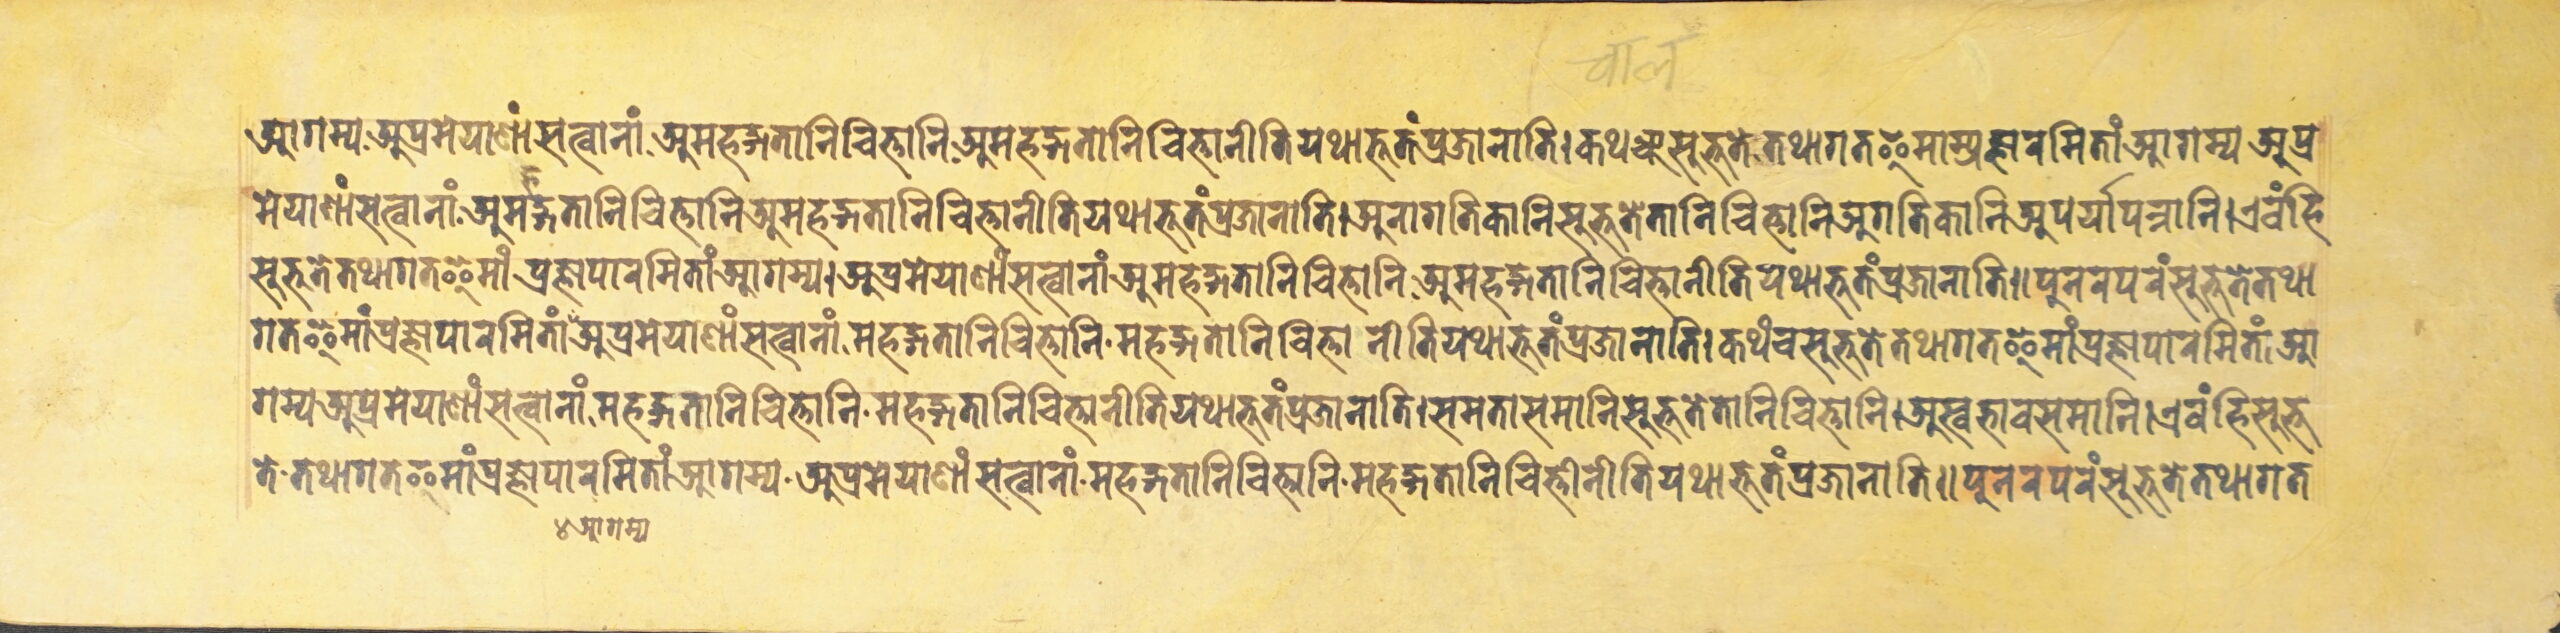 वाल
आगम्य अप्रमेयाणां सत्वानां अमहद्गतानि चित्तानि अमहद्गतानि चित्तानीति यथाभूतं प्रजानाति। कथञ्च सुभूते तथागत इमाम्प्रज्ञारमितां आगम्य अप्र
मेयाणां सत्वानां अमहद्गतानि चित्तानि अमहद्गतानि चित्तानीति यथाभूतं प्रजानाति। अनागतिकानि सुभूते तानि चित्तानि अगतिकानि अपर्यापन्नानि। एवं हि
सुभूते तथागत इमां प्रज्ञापारमितां आगम्य। अप्रमेयाणां सत्वानां अमहद्गतानि चित्तानि अमहद्गतानि चित्तानीति यथाभूतं प्रजानाति॥ पुनरपरं सुभूते तथा
गत इमां प्रज्ञापारमितां अप्रमेयाणां सत्वानां महद्गतानि चित्तानि महद्गतानि चित्तानीति यथाभूतं प्रजानाति। कथं च सुभूते तथागत इमां प्रज्ञापारमितां आ
गम्य अप्रमेयाणां सत्वानां महद्गतानि चित्तानि महद्गतानि चित्तानीति यथाभूतं प्रजानाति। समतासमानि सुभूते तानि चित्तानि। अस्वभावसमानि। एवं हि सुभू
ते तथागत इमां प्रज्ञापारमितां आगम्य अप्रमेयाणां सत्वानां महद्गतानि चित्तानि महद्गतानि चित्तानीति यथाभूतं प्रजानाति॥ पुनरपरं सुभूते तथागत
४ आगम्य